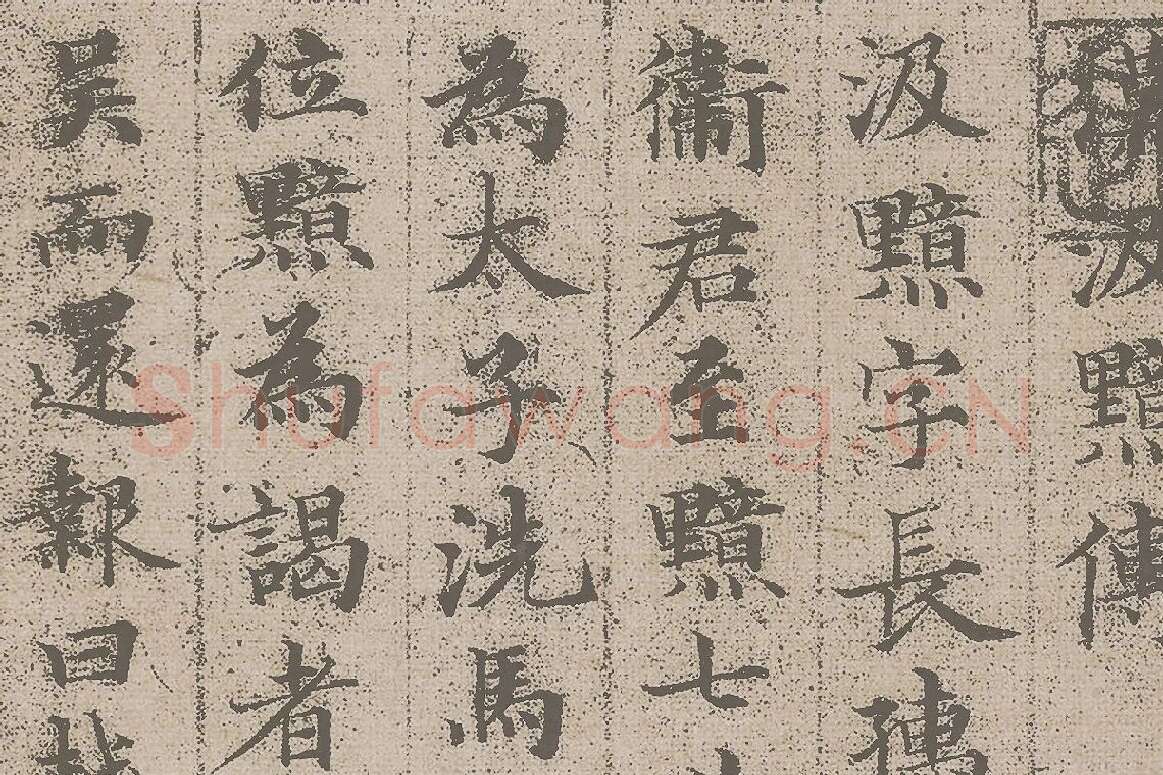 汲黯傳
汲黯字長孺
衛君至黯七
為太子洗馬
位黯為謁者
吳而還報曰越
Shufawang.CN